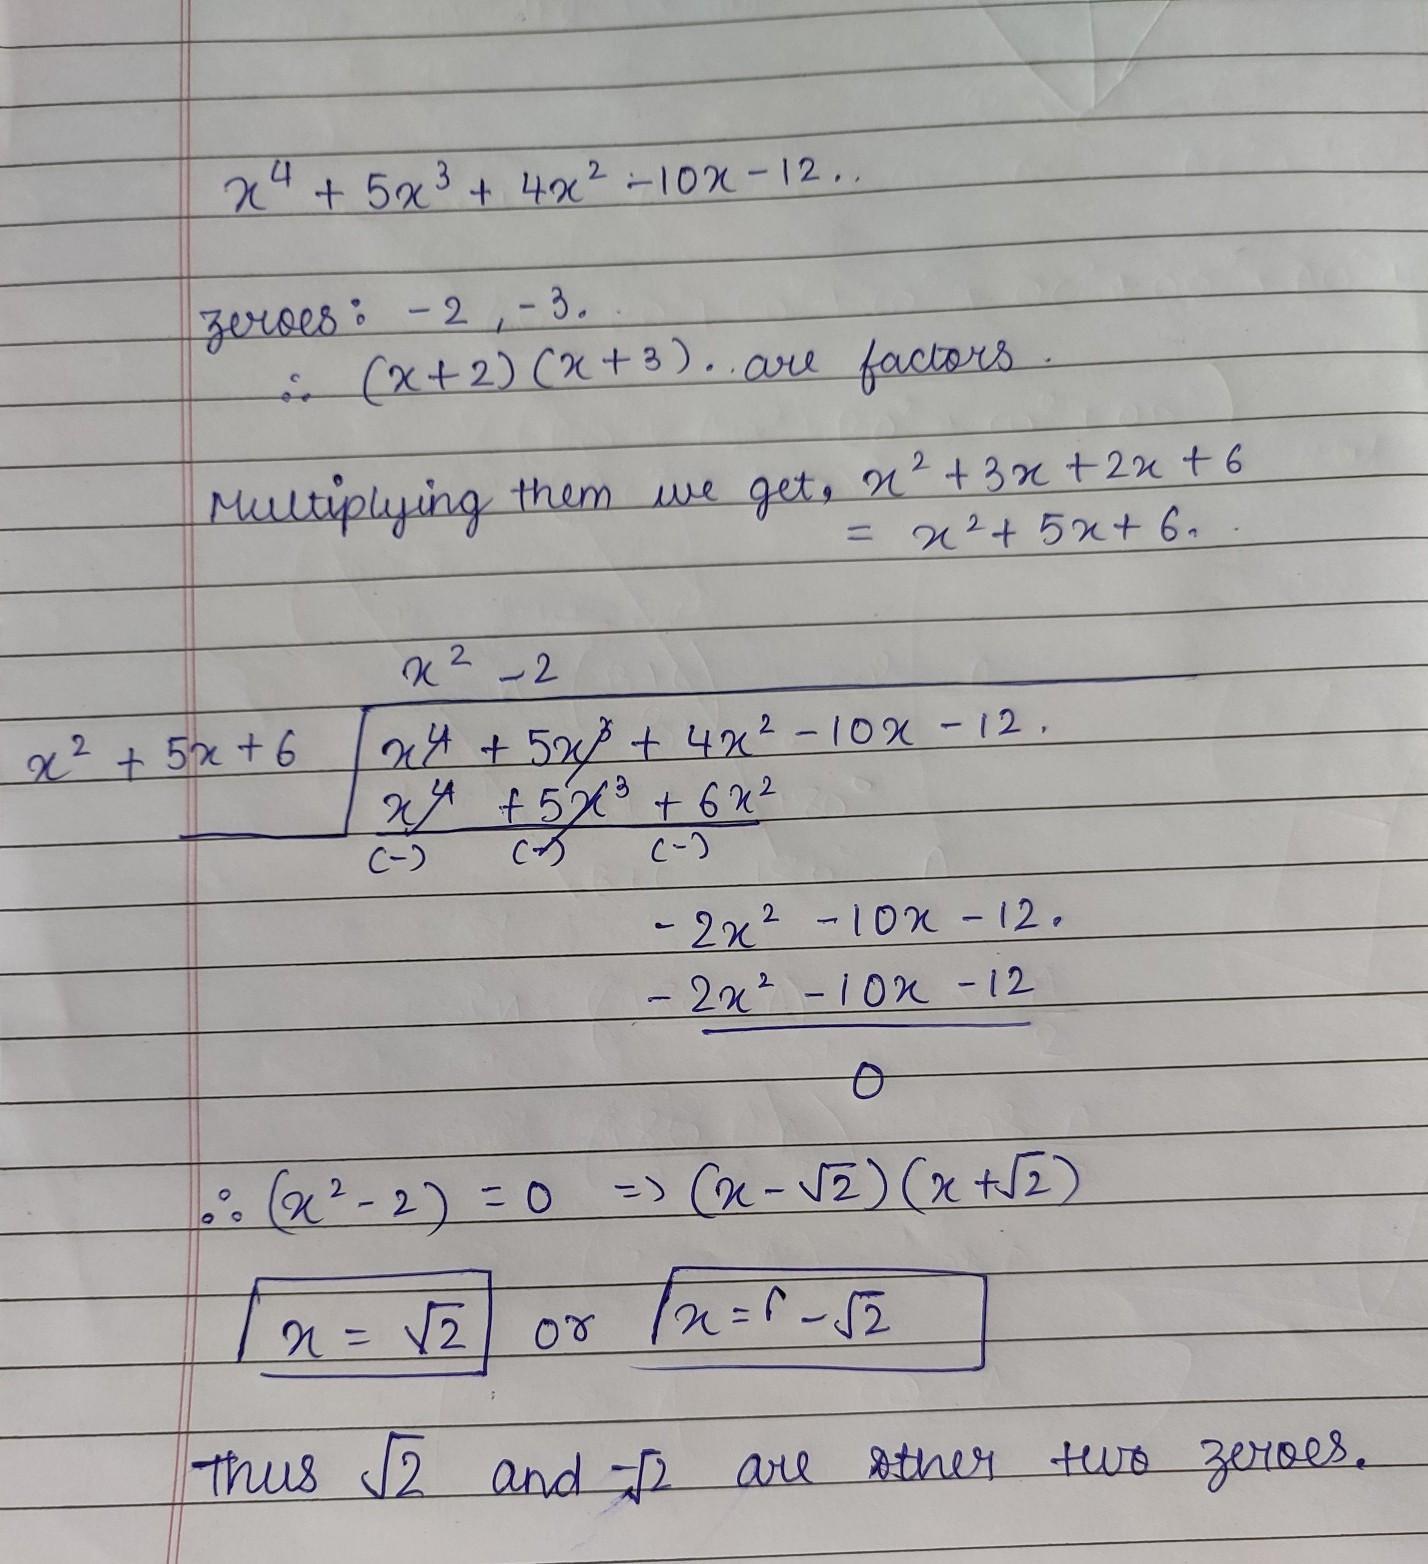 x⁴ + 5x³ + 4x² - 10x - 12..
zeroes: -2, -3.
∴ (x+2)(x+3). are factors.
Multiplying them we get, x² + 3x + 2x + 6
= x² + 5x + 6.
x² - 2
x² + 5x + 6 x⁴ + 5x³ + 4x² - 10x - 12.
x⁴ + 5x³ + 6x²
(-) (-) (-)
- 2x² - 10x - 12.
- 2x² - 10x - 12
0
∴ (x² - 2) = 0 => (x - √2)(x + √2)
x = √2 or x = - √2
Thus √2 and -√2 are other two zeroes.